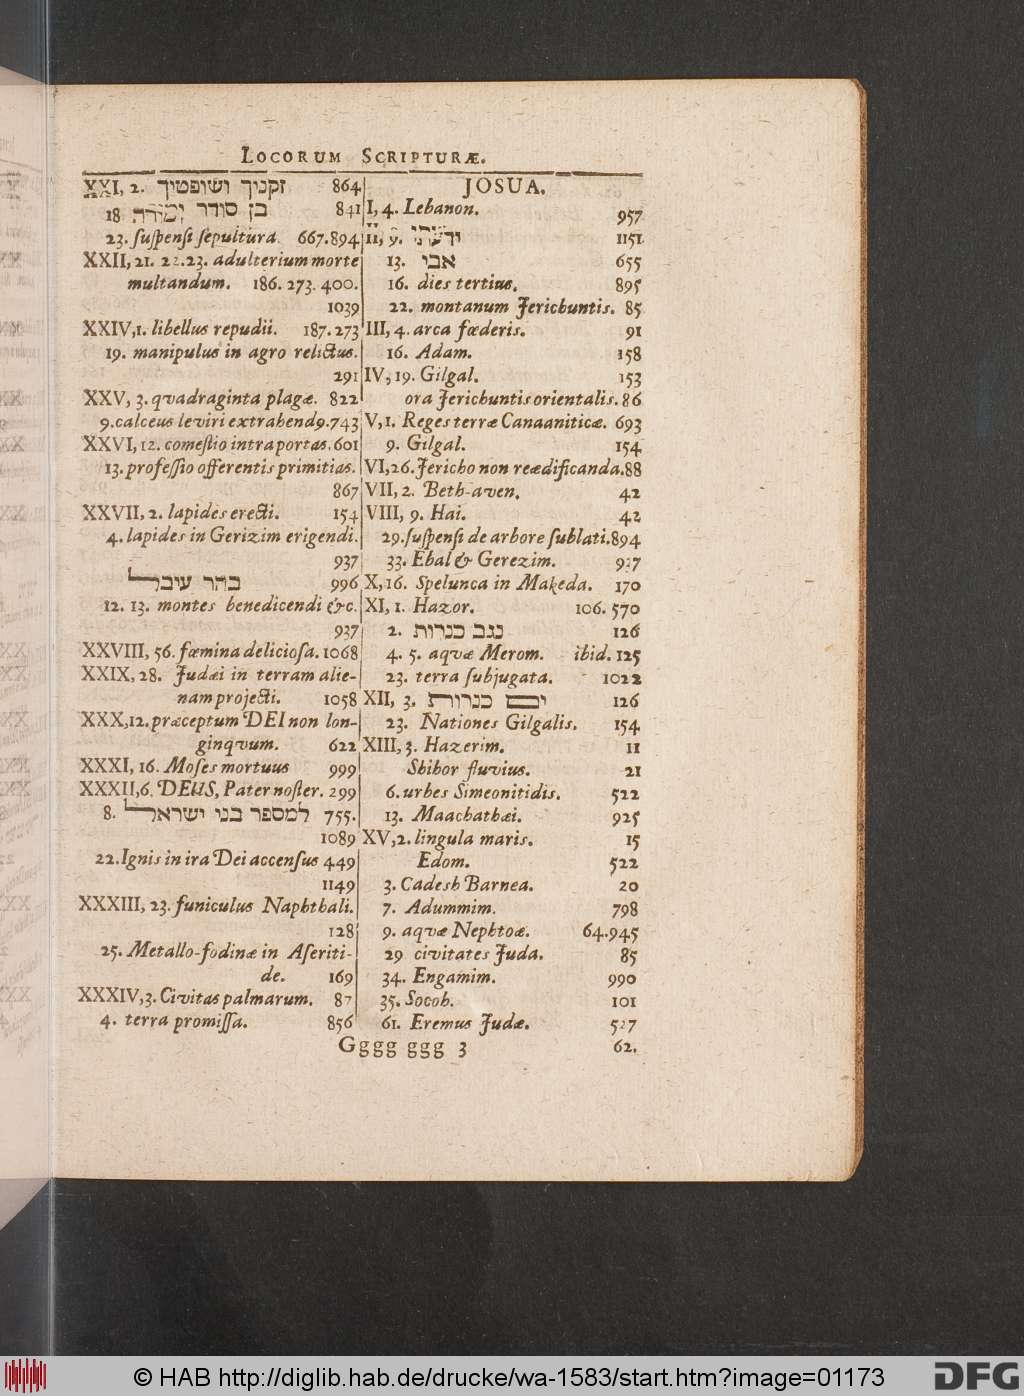 LOCORUM SCRIPTURÆ.
XXI, 2. זקנוך ושופטיך 864
18 בן סודר ומורה 841
23. ſuſpenſi ſepultura. 667.894
XXII, 21. 22.23. adulterium morte
multandum. 186. 273. 400.
1039
XXIV,1. libellus repudii. 187.273
19. manipulus in agro relictus.
291
XXV, 3. qvadraginta plagæ. 822
9.calceus leviri extrahend9.743
XXVI, 12. comeſtio intra portas.601
13. profeſſio offerentis primitias.
867
XXVII, 2. lapides erecti. 154
4. lapides in Gerizim erigendi.
937
בהר עיבל 996
12. 13. montes benedicendi &c.
937
XXVIII, 56. fœmina delicioſa. 1068
XXIX, 28. Judæi in terram alie-
nam projecti. 1058
XXX,12. præceptum DEI non lon-
ginqvum. 622
XXXI, 16. Moſes mortuus 999
XXXII,6. DEUS, Pater noſter. 299
8. למספר בני ישראל 755.
1089
22.Ignis in ira Dei accenſus 449
1149
XXXIII, 23. funiculus Naphthali.
128
25. Metallo-fodinæ in Aſeriti-
de. 169
XXXIV,3. Civitas palmarum. 87
4. terra promiſſa. 856
JOSUA.
I, 4. Lebanon. 957
II, 9. ידעתי 1151
13. אבי 655
16. dies tertius. 895
22. montanum Jerichuntis. 85
III, 4. arca fœderis. 91
16. Adam. 158
IV, 19. Gilgal. 153
ora Jerichuntis orientalis. 86
V, 1. Reges terræ Canaaniticæ. 693
9. Gilgal. 154
VI,26. Jericho non reædificanda.88
VII, 2. Beth-aven. 42
VIII, 9. Hai. 42
29.ſuſpenſi de arbore ſublati.894
33. Ebal & Gerezim. 937
X, 16. Spelunca in Makeda. 170
XI, 1. Hazor. 106. 570
2. נגב כנרות 126
4. 5. aqvæ Merom. ibid. 125
23. terra ſubjugata. 1022
XII, 3. ים כנרות 126
23. Nationes Gilgalis. 154
XIII, 3. Hazerim. 11
Shihor fluvius. 21
6. urbes Simeonitidis. 522
13. Maachathæi. 925
XV, 2. lingula maris. 15
Edom. 522
3. Cadesh Barnea. 20
7. Adummim. 798
9. aqvæ Nephtoæ. 64.945
29 civitates Juda. 85
34. Engamim. 990
35. Socoh. 101
61. Eremus Judæ. 527
Gggg ggg 3 62.
© HAB http://diglib.hab.de/drucke/wa-1583/start.htm?image=01173
DFG